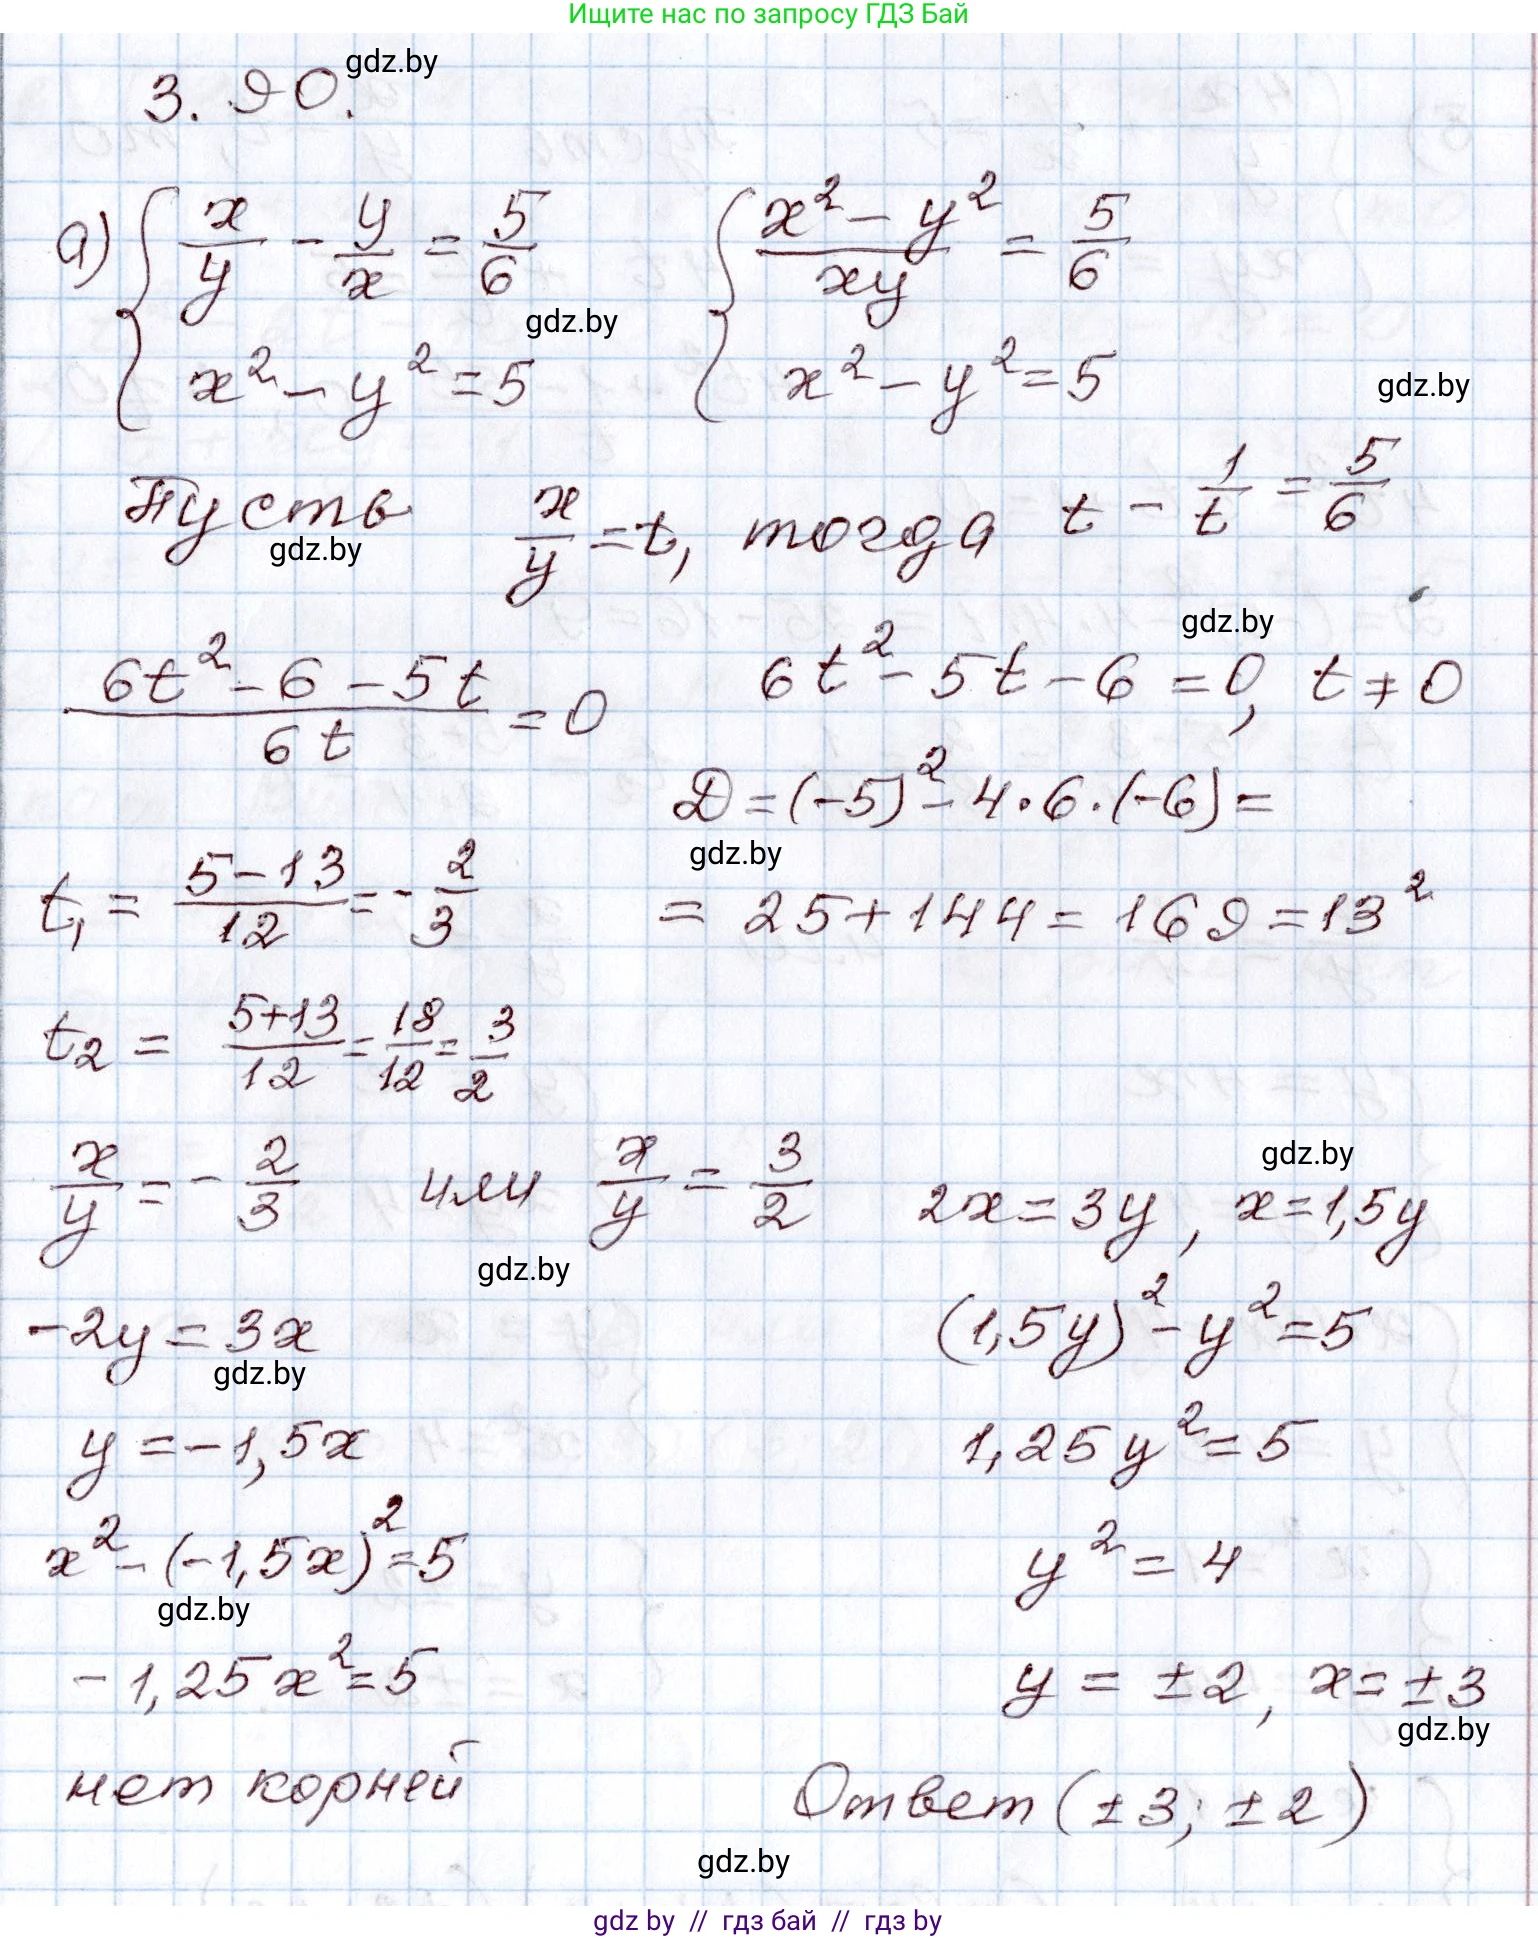 Ищите нас по запросу ГДЗ Бай
3.90.
gdz.by
а) { x/y - y/x = 5/6   { (x² - y²)/xy = 5/6
gdz.by
x² - y² = 5   x² - y² = 5
gdz.by
Пусть x/y = t, тогда t - 1/t = 5/6
gdz.by
gdz.by
(6t² - 6 - 5t)/6t = 0   6t² - 5t - 6 = 0, t ≠ 0
Д = (-5)² - 4·6·(-6) =
gdz.by
t₁ = (5-13)/12 = - 2/3   = 25 + 144 = 169 = 13²
t₂ = (5+13)/12 = 18/12 = 3/2
gdz.by
x/y = - 2/3 или x/y = 3/2   2x = 3y, x = 1,5y
gdz.by
-2y = 3x   (1,5y)² - y² = 5
gdz.by
y = -1,5x   1,25y² = 5
x² - (-1,5x)² = 5   y² = 4
gdz.by
-1,25x² = 5   y = ±2, x = ±3
gdz.by
нет корней   Ответ (±3; ±2)
gdz.by
gdz by // гдз бай // гдз by